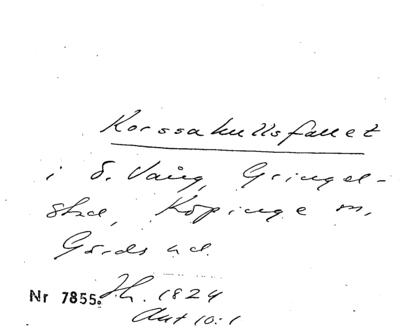 Korssakullsfallet
i ö. Vång, Gringel-
stad, Köpinge sn,
Gärds hd.
Nr 7855. Jh. 1824
Akt 10:1